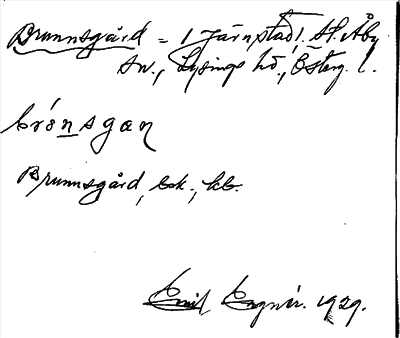 Brunnsgård = 1 Järnstad 1. St. Åby
sn., Lysings hd., Österg. l.
brónsgæn
Brunnsgård, bsk., kb.
Emil Cagnér. 1929.